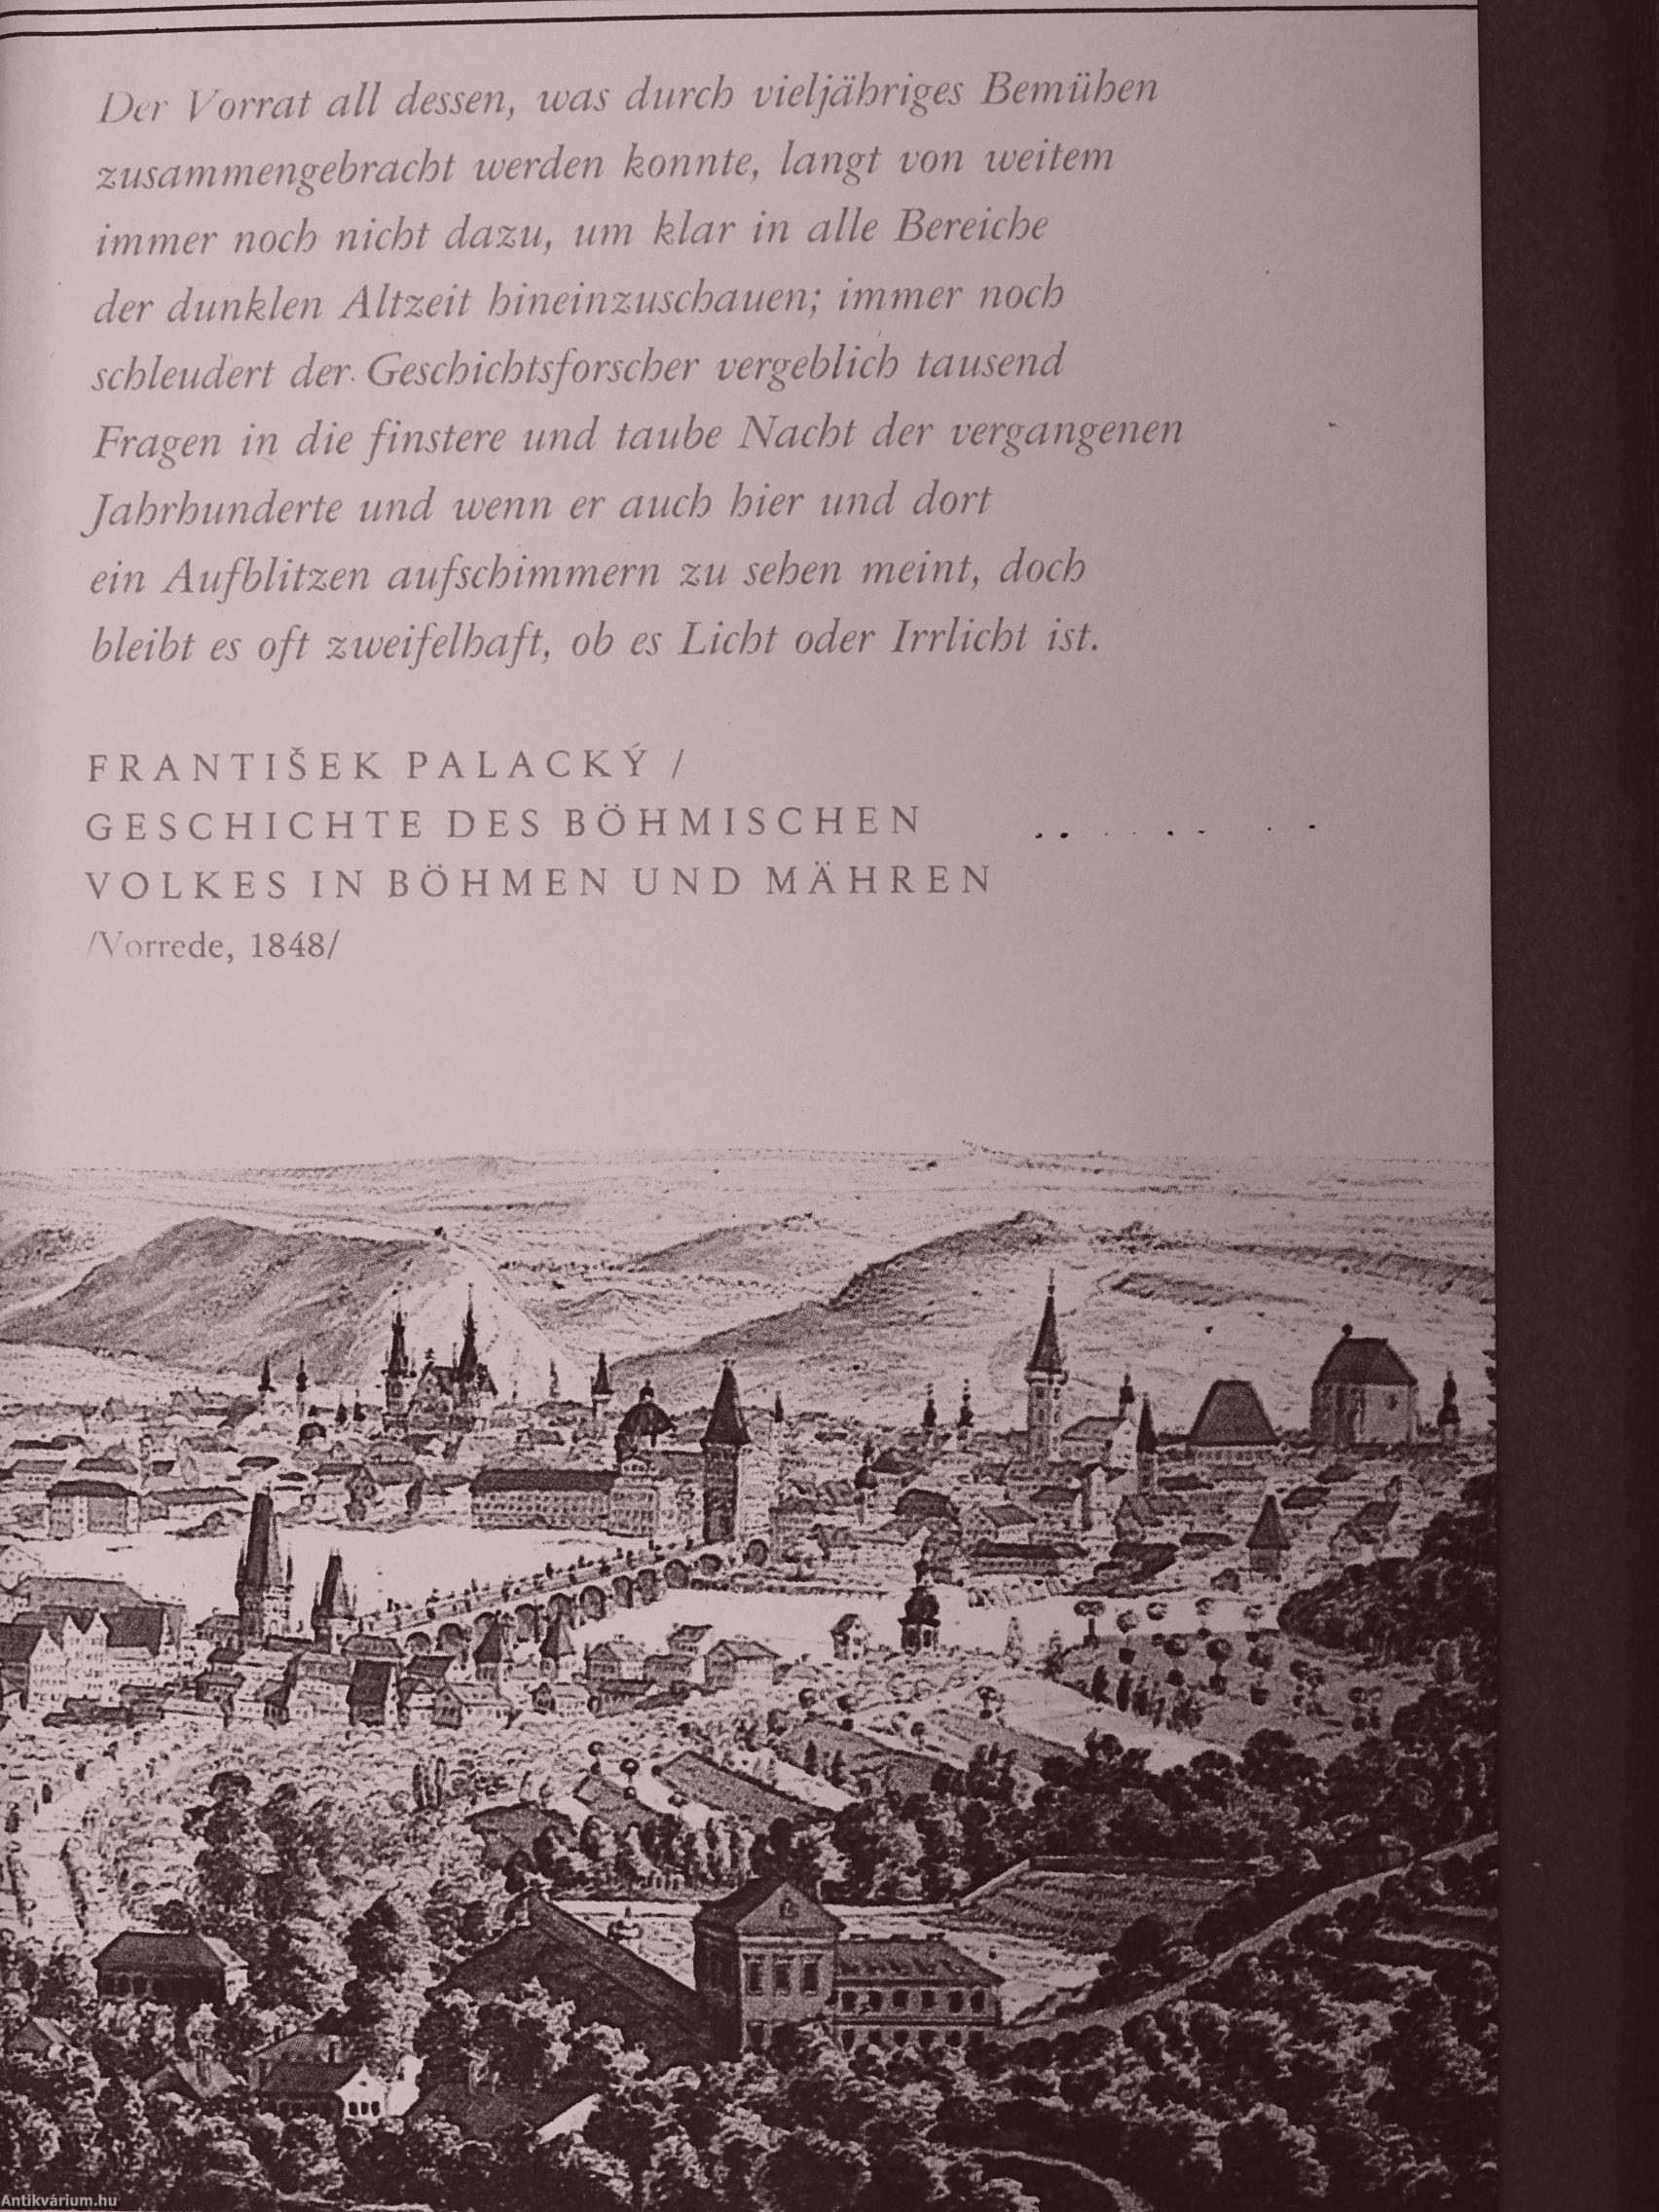 Der Vorrat all dessen, was durch vieljähriges Bemühen
zusammengebracht werden konnte, langt von weitem
immer noch nicht dazu, um klar in alle Bereiche
der dunklen Altzeit hineinzuschauen; immer noch
schleudert der Geschichtsforscher vergeblich tausend
Fragen in die finstere und taube Nacht der vergangenen
Jahrhunderte und wenn er auch hier und dort
ein Aufblitzen aufschimmern zu sehen meint, doch
bleibt es oft zweifelhaft, ob es Licht oder Irrlicht ist.
FRANTIŠEK PALACKÝ /
GESCHICHTE DES BÖHMISCHEN
VOLKES IN BÖHMEN UND MÄHREN
/Vorrede, 1848/
Antikvárium.hu